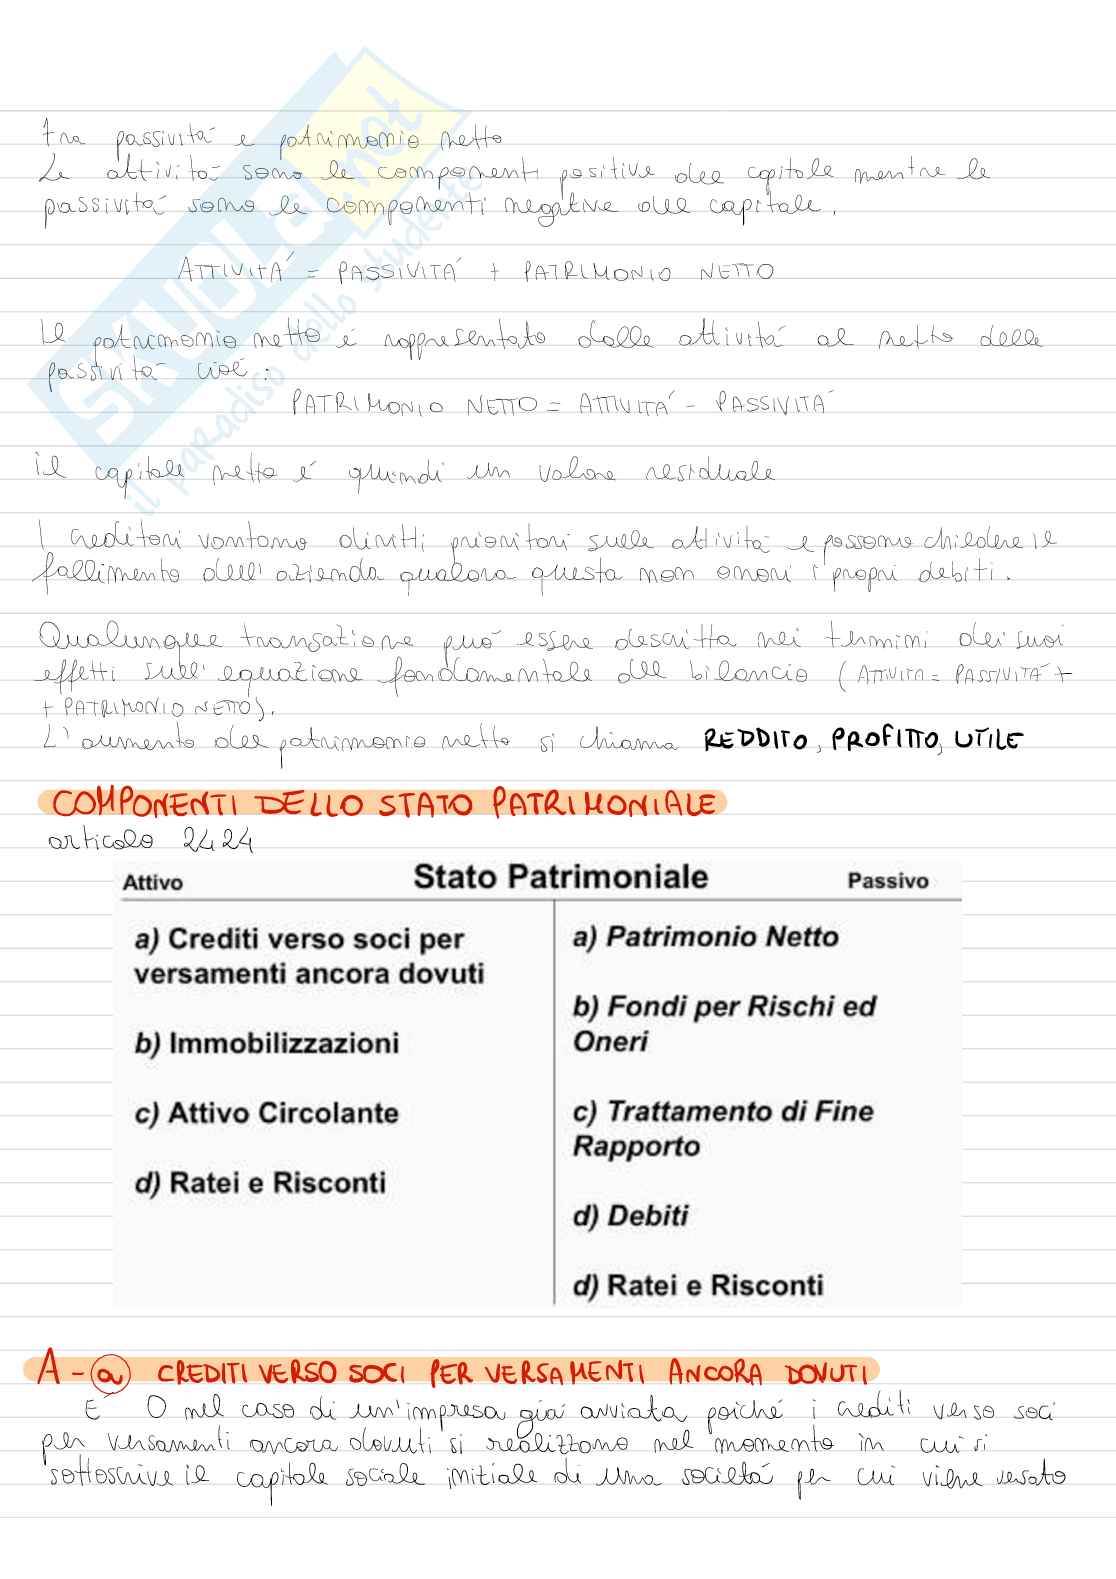 tra passività e patrimonio netto
Le attività sono le componenti positive del capitale mentre le
passività sono le componenti negative del capitale.
ATTIVITÀ = PASSIVITÀ + PATRIMONIO NETTO
Il patrimonio netto è rappresentato dalle attività al netto delle
passività cioè:
PATRIMONIO NETTO = ATTIVITÀ - PASSIVITÀ
il capitale netto è quindi un valore residuale
I creditori vantano diritti prioritari sulle attività e possono chiedere il
fallimento dell'azienda qualora questa non onori i propri debiti.
Qualunque transazione può essere descritta nei termini dei suoi
effetti sull'equazione fondamentale del bilancio (ATTIVITÀ = PASSIVITÀ +
+ PATRIMONIO NETTO).
L'aumento del patrimonio netto si chiama REDDITO, PROFITTO, UTILE
COMPONENTI DELLO STATO PATRIMONIALE
articolo 2424
Attivo Stato Patrimoniale Passivo
a) Crediti verso soci per
versamenti ancora dovuti
b) Immobilizzazioni
c) Attivo Circolante
d) Ratei e Risconti
a) Patrimonio Netto
b) Fondi per Rischi ed
Oneri
c) Trattamento di Fine
Rapporto
d) Debiti
d) Ratei e Risconti
A - a CREDITI VERSO SOCI PER VERSAMENTI ANCORA DOVUTI
E' 0 nel caso di un'impresa già avviata poiché i crediti verso soci
per versamenti ancora dovuti si realizzano nel momento in cui si
sottoscrive il capitale sociale initiale di una società per cui viene versato
SKUOLA.net
il paradiso dello studente